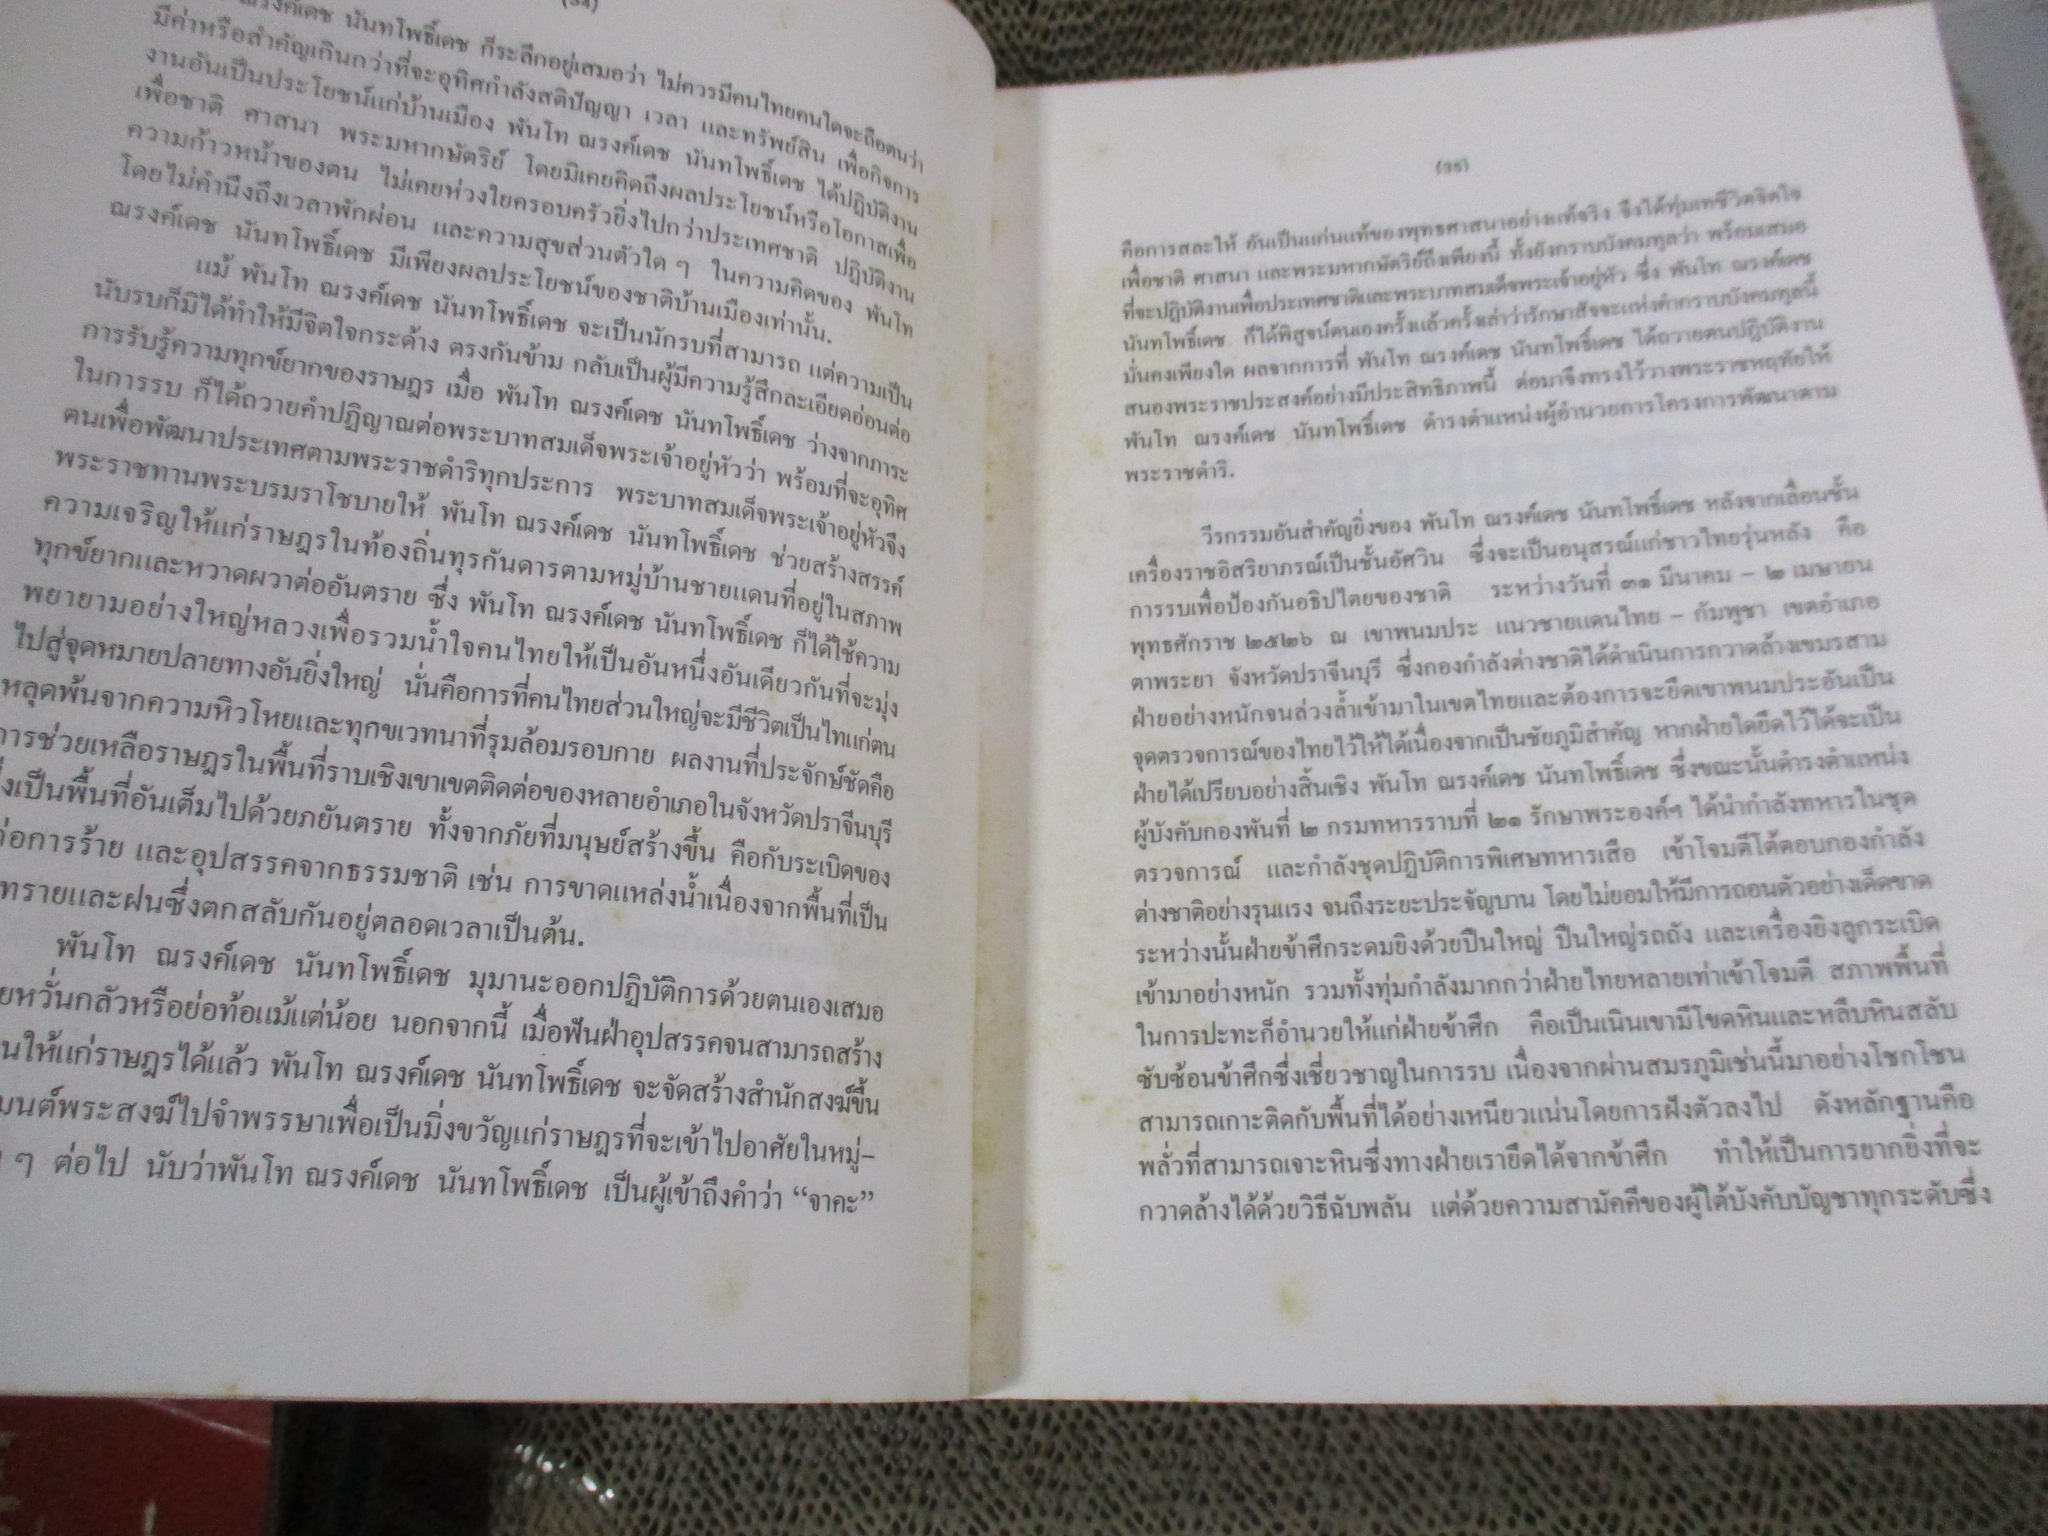 ณรงค์เดช นันทโพธิ์เดช ก็ระลึกอยู่เสมอว่า ไม่ควรมีคนไทยคนใดจะถือตนว่า
มีค่าหรือสำคัญเกินกว่าที่จะอุทิศกำลังสติปัญญา เวลา และทรัพย์สิน เพื่อกิจการ
งานอันเป็นประโยชน์แก่บ้านเมือง พันโท ณรงค์เดช นันทโพธิ์เดช ได้ปฏิบัติงาน
เพื่อชาติ ศาสนา พระมหากษัตริย์ โดยมิเคยคิดถึงผลประโยชน์หรือโอกาสเพื่อ
ความก้าวหน้าของตน ไม่เคยห่วงใยครอบครัวยิ่งไปกว่าประเทศชาติ ปฏิบัติงาน
โดยไม่คำนึงถึงเวลาพักผ่อน และความสุขส่วนตัวใด ๆ ในความคิดของ พันโท
ณรงค์เดช นันทโพธิ์เดช มีเพียงผลประโยชน์ของชาติบ้านเมืองเท่านั้น.
แม้ พันโท ณรงค์เดช นันทโพธิ์เดช จะเป็นนักรบที่สามารถ แต่ความเป็น
นับรบก็มิได้ทำให้มีจิตใจกระด้าง ตรงกันข้าม กลับเป็นผู้มีความรู้สึกละเอียดอ่อนต่อ
การรับรู้ความทุกข์ยากของราษฎร เมื่อ พันโท ณรงค์เดช นันทโพธิ์เดช ว่างจากภาระ
ในการรบ ก็ได้ถวายคำปฏิญาณต่อพระบาทสมเด็จพระเจ้าอยู่หัวว่า พร้อมที่จะอุทิศ
ตนเพื่อพัฒนาประเทศตามพระราชดำริทุกประการ พระบาทสมเด็จพระเจ้าอยู่หัวจึง
พระราชทานพระบรมราโชบายให้ พันโท ณรงค์เดช นันทโพธิ์เดช ช่วยสร้างสรรค์
ความเจริญให้แก่ราษฎรในท้องถิ่นทุรกันดารตามหมู่บ้านชายแดนที่อยู่ในสภาพ
ทุกข์ยากและหวาดผวาต่ออันตราย ซึ่ง พันโท ณรงค์เดช นันทโพธิ์เดช ก็ได้ใช้ความ
พยายามอย่างใหญ่หลวงเพื่อรวมน้ำใจคนไทยให้เป็นอันหนึ่งอันเดียวกันที่จะมุ่ง
ไปสู่จุดหมายปลายทางอันยิ่งใหญ่ นั่นคือการที่คนไทยส่วนใหญ่จะมีชีวิตเป็นไทแก่ตน
หลุดพ้นจากความหิวโหยและทุกขเวทนาที่รุมล้อมรอบกาย ผลงานที่ประจักษ์ชัดคือ
การช่วยเหลือราษฎรในพื้นที่ราบเชิงเขาเขตติดต่อของหลายอำเภอในจังหวัดปราจีนบุรี
เป็นพื้นที่อันเต็มไปด้วยภยันตราย ทั้งจากภัยที่มนุษย์สร้างขึ้น คือกับระเบิดของ
การร้าย และอุปสรรคจากธรรมชาติ เช่น การขาดแหล่งน้ำเนื่องจากพื้นที่เป็น
ทรายและฝนซึ่งตกสลับกันอยู่ตลอดเวลาเป็นต้น.
พันโท ณรงค์เดช นันทโพธิ์เดช มุมานะออกปฏิบัติการด้วยตนเองเสมอ
หวั่นกลัวหรือย่อท้อแม้แต่น้อย นอกจากนี้ เมื่อฟันฝ่าอุปสรรคจนสามารถสร้าง
ให้แก่ราษฎรได้แล้ว พันโท ณรงค์เดช นันทโพธิ์เดช จะจัดสร้างสำนักสงฆ์ขึ้น
มนต์พระสงฆ์ไปจำพรรษาเพื่อเป็นมิ่งขวัญแก่ราษฎรที่จะเข้าไปอาศัยในหมู่–
ๆ ต่อไป นับว่าพันโท ณรงค์เดช นันทโพธิ์เดช เป็นผู้เข้าถึงคำว่า “จาคะ”
คือการสละให้ อันเป็นแก่นแท้ของพุทธศาสนาอย่างแท้จริง จึงได้ทุ่มเทชีวิตจิตใจ
เพื่อชาติ ศาสนา และพระมหากษัตริย์ถึงเพียงนี้ ทั้งยังกราบบังคมทูลว่า พร้อมเสมอ
ที่จะปฏิบัติงานเพื่อประเทศชาติและพระบาทสมเด็จพระเจ้าอยู่หัว ซึ่ง พันโท ณรงค์เดช
นันทโพธิ์เดช ก็ได้พิสูจน์ตนเองครั้งแล้วครั้งเล่าว่ารักษาสัจจะแห่งคำกราบบังคมทูลนี้
มั่นคงเพียงใด ผลจากการที่ พันโท ณรงค์เดช นันทโพธิ์เดช ได้ถวายตนปฏิบัติงาน
สนองพระราชประสงค์อย่างมีประสิทธิภาพนี้ ต่อมาจึงทรงไว้วางพระราชหฤทัยให้
พันโท ณรงค์เดช นันทโพธิ์เดช ดำรงตำแหน่งผู้อำนวยการโครงการพัฒนาตาม
พระราชดำริ.
วีรกรรมอันสำคัญยิ่งของ พันโท ณรงค์เดช นันทโพธิ์เดช หลังจากเลื่อนชั้น
เครื่องราชอิสริยาภรณ์เป็นชั้นอัศวิน ซึ่งจะเป็นอนุสรณ์แก่ชาวไทยรุ่นหลัง คือ
การรบเพื่อป้องกันอธิปไตยของชาติ ระหว่างวันที่ ๓๑ มีนาคม – ๒ เมษายน
พุทธศักราช ๒๕๒๖ ณ เขาพนมประ แนวชายแดนไทย – กัมพูชา เขตอำเภอ
ตาพระยา จังหวัดปราจีนบุรี ซึ่งกองกำลังต่างชาติได้ดำเนินการกวาดล้างเขมรสาม
ฝ่ายอย่างหนักจนล่วงล้ำเข้ามาในเขตไทยและต้องการจะยึดเขาพนมประอันเป็น
จุดตรวจการณ์ของไทยไว้ให้ได้เนื่องจากเป็นชัยภูมิสำคัญ หากฝ่ายใดยึดไว้ได้จะเป็น
ฝ่ายได้เปรียบอย่างสิ้นเชิง พันโท ณรงค์เดช นันทโพธิ์เดช ซึ่งขณะนั้นดำรงตำแหน่ง
ผู้บังคับกองพันที่ ๒ กรมทหารราบที่ ๒๑ รักษาพระองค์ฯ ได้นำกำลังทหารในชุด
ตรวจการณ์ และกำลังชุดปฏิบัติการพิเศษทหารเสือ เข้าโจมตีโต้ตอบกองกำลัง
ต่างชาติอย่างรุนแรง จนถึงระยะประจัญบาน โดยไม่ยอมให้มีการถอนตัวอย่างเด็ดขาด
ระหว่างนั้นฝ่ายข้าศึกระดมยิงด้วยปืนใหญ่ ปืนใหญ่รถถัง และเครื่องยิงลูกระเบิด
เข้ามาอย่างหนัก รวมทั้งทุ่มกำลังมากกว่าฝ่ายไทยหลายเท่าเข้าโจมตี สภาพพื้นที่
ในการปะทะก็อำนวยให้แก่ฝ่ายข้าศึก คือเป็นเนินเขามีโขดหินและหลืบหินสลับ
ซับซ้อนข้าศึกซึ่งเชี่ยวชาญในการรบ เนื่องจากผ่านสมรภูมิเช่นนี้มาอย่างโชกโชน
สามารถเกาะติดกับพื้นที่ได้อย่างเหนียวแน่นโดยการฝังตัวลงไป ดังหลักฐานคือ
พลั่วที่สามารถเจาะหินซึ่งทางฝ่ายเรายึดได้จากข้าศึก ทำให้เป็นการยากยิ่งที่จะ
กวาดล้างได้ด้วยวิธีฉับพลัน แต่ด้วยความสามัคคีของผู้ใต้บังคับบัญชาทุกระดับซึ่ง